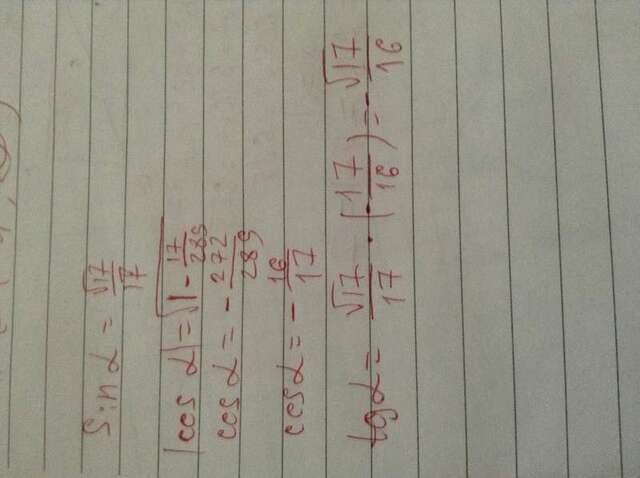 sin α = √17/17
|cos α| = √(1 - 17/289)
cos α = - 272/289
cos α = - 16/17
tg α = √17/17 · (-17/16) = - √17/16